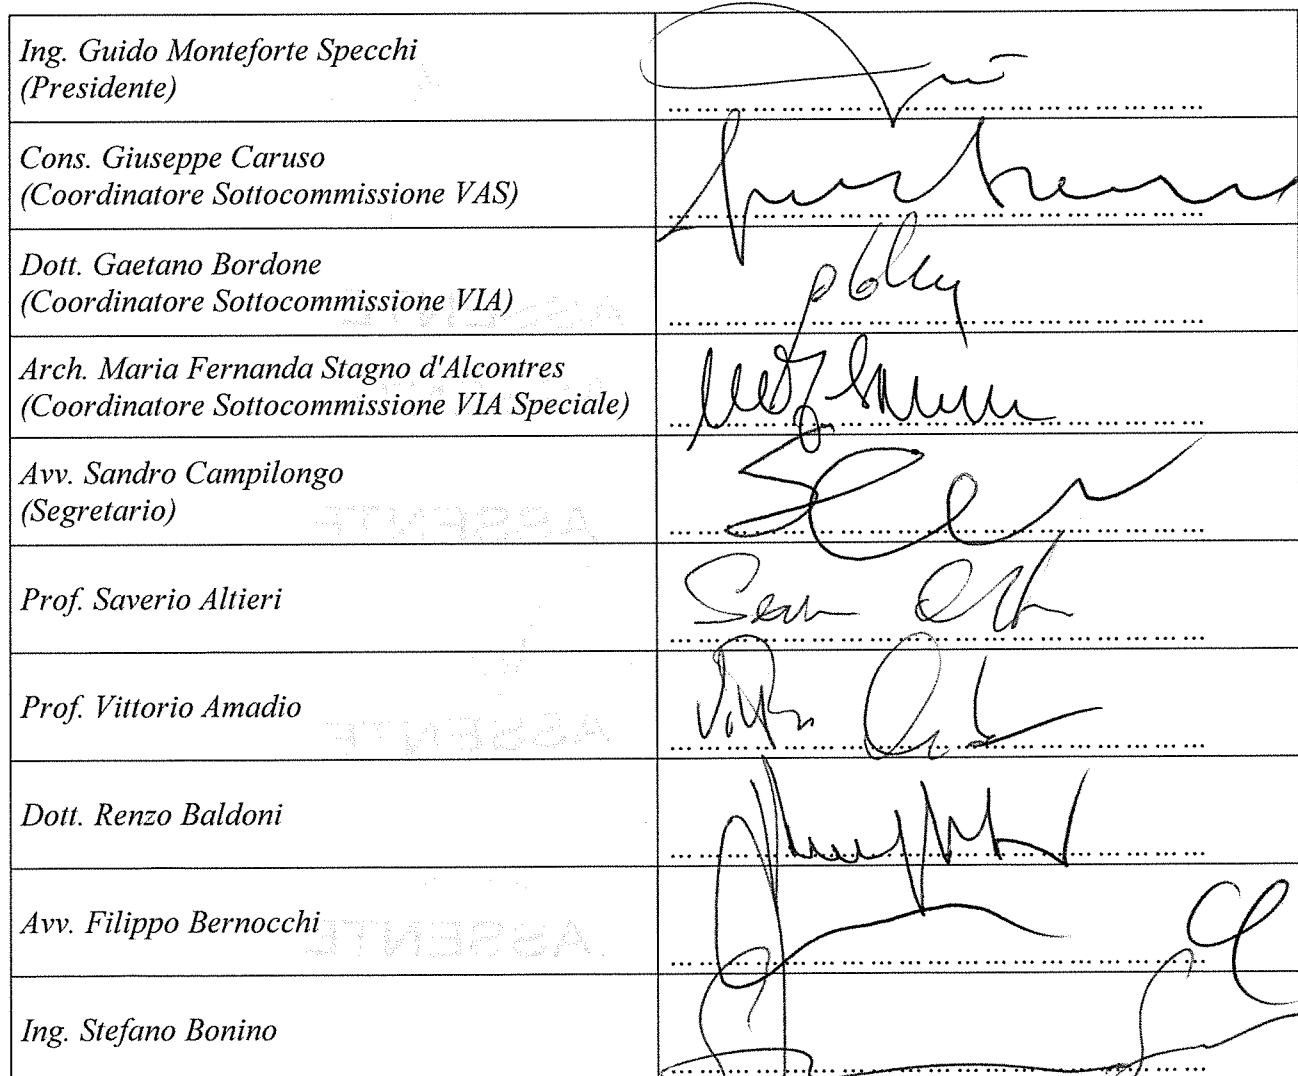 Ing. Guido Monteforte Specchi
(Presidente)
Cons. Giuseppe Caruso
(Coordinatore Sottocommissione VAS)
Dott. Gaetano Bordone
(Coordinatore Sottocommissione VIA)
ASSENTE
Arch. Maria Fernanda Stagno d'Alcontres
(Coordinatore Sottocommissione VIA Speciale)
Avv. Sandro Campilongo
(Segretario)
ASSENTE
Prof. Saverio Altieri
Prof. Vittorio Amadio
ASSENTE
Dott. Renzo Baldoni
Avv. Filippo Bernocchi
ASSENTE
Ing. Stefano Bonino